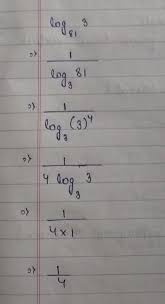 log₈₁ 3
=> 1 / log₃ 81
=> 1 / log₃ (3)⁴
=> 1 / 4 log₃ 3
=> 1 / 4×1
=> 1 / 4